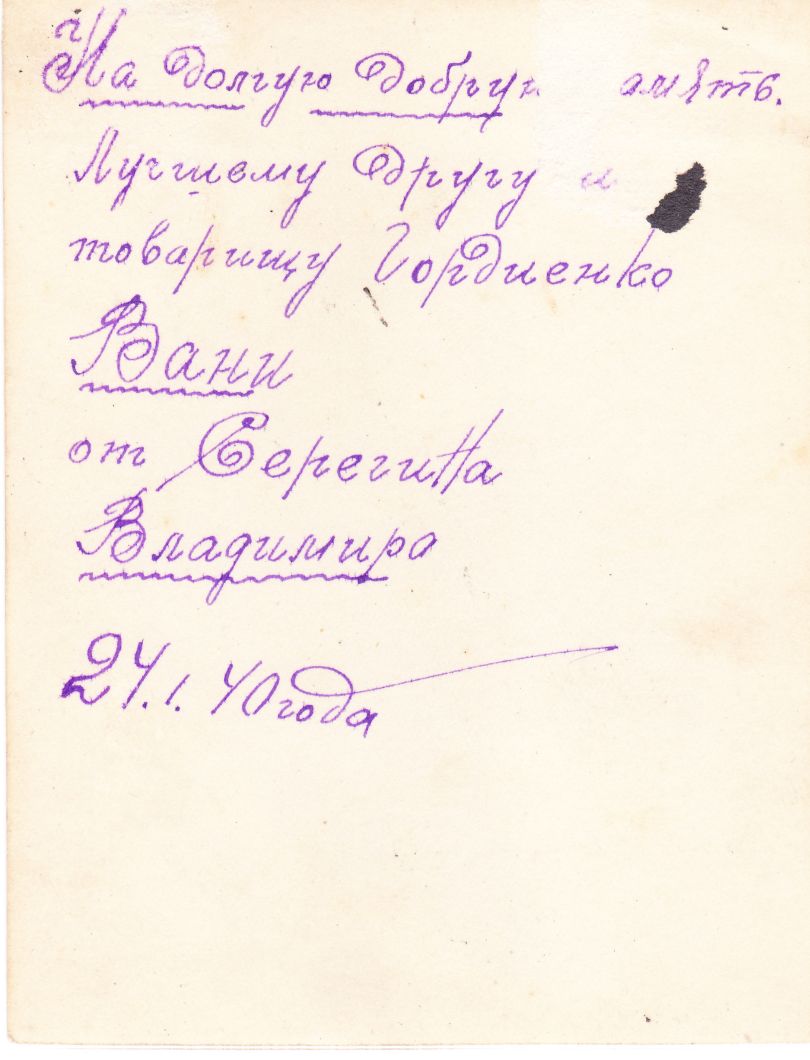 На долгую добрую память.
Лучшему другу и
товарищу Гордиенко
Вани
от Серегина
Владимира
24.1.40 года